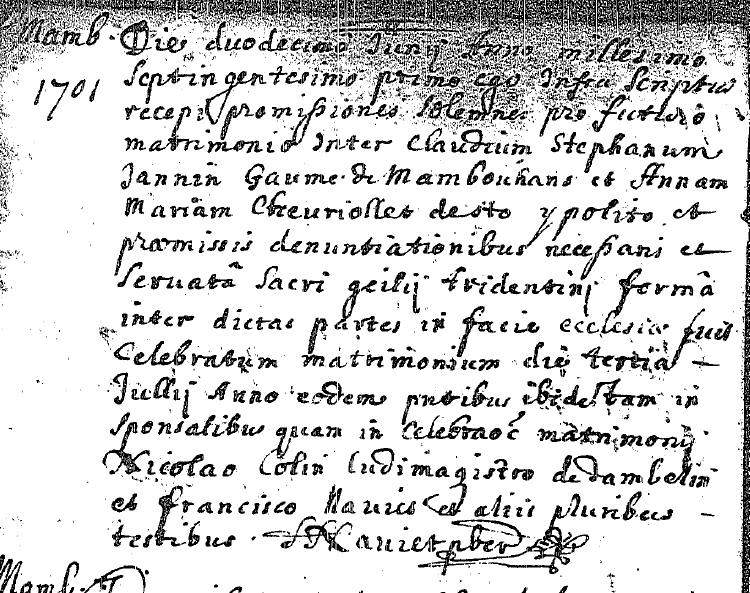 Mamb. Die duodecimo Junij Anno millesimo
1701 septingentesimo primo ego Infra Scriptus
recepi promissiones solemnes pro futuro
matrimonio Inter Claudium Stephanum
Jannin Gaume de Mambouhans et Annam
Mariam Chevriollet desto ypolito et
præmissis denuntiationibus necessariis et
servatâ Sacri Tridentinj formâ
inter dictas partes in facie ecclesiæ fuit
Celebratum matrimonium die tertia
Jullij Anno eodem pntibus ibidē tam in
sponsalibus quam in Celebraoē matrimonij
Nicolao Colin ludimagistro de dambelin
et francisco et aliis pluribus
testibus. pber
Mamb.